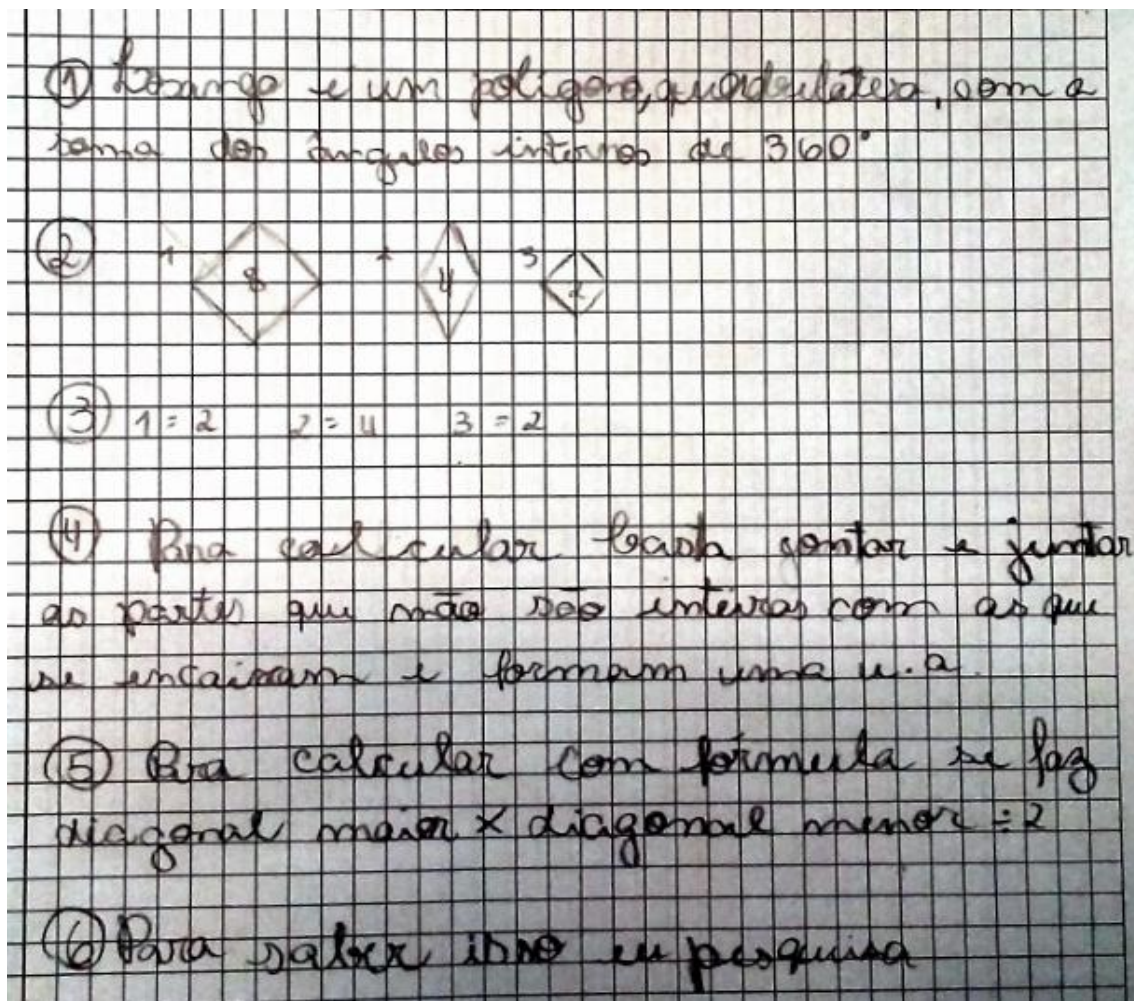 ① Losango é um polígono, quadrilátero, com a
soma dos ângulos internos de 360°
② 1 8 2 4 3 2
③ 1 = 2 2 = 4 3 = 2
④ Para calcular basta contar e juntar
as partes que não são inteiras com as que
se encaixam e formam uma u.a.
⑤ Para calcular com fórmula se faz
diagonal maior × diagonal menor ÷ 2
⑥ Para saber isso eu pesquisa